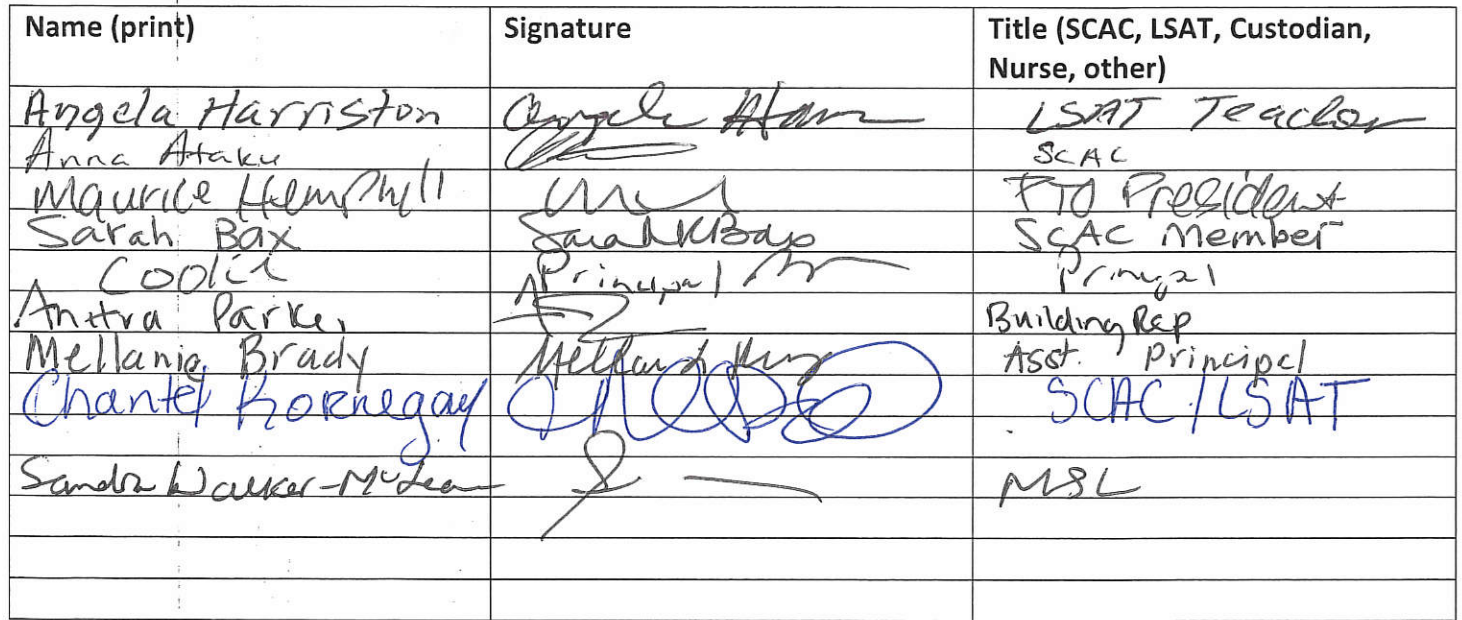 Name (print) Signature Title (SCAC, LSAT, Custodian,
Nurse, other)
Angela Harriston LSAT Teacher
Anna Ataku SCAC
Maurice Hemphill PTO President
Sarah Bax Sarah K Bax SCAC Member
Principal Principal
Parker Building Rep
Mellanie Brady Asst. Principal
Chantel Kornegay SCAC / LSAT
Sandra Walker-McLean MSL